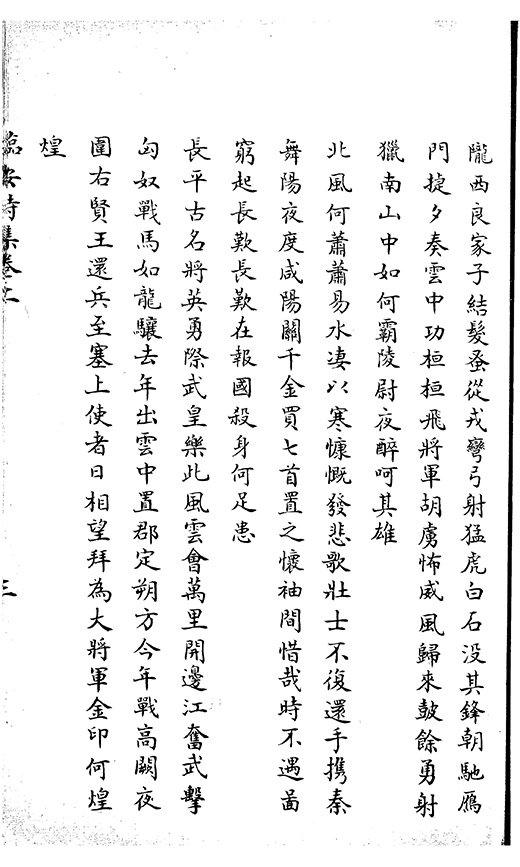 隴西良家子結髮蚤從戎彎弓射猛虎白石没其鋒朝馳鴈
門捷夕奏雲中功桓桓飛將軍胡虜怖威風歸來鼓餘勇射
獵南山中如何霸陵尉夜醉呵其雄
北風何蕭蕭易水凄以寒慷慨發悲歌壯士不復還手携秦
舞陽夜度咸陽關千金買七首置之懷袖間惜哉時不遇啚
窮起長歎長歎在報國殺身何足患
長平古名將英勇際武皇樂此風雲會萬里開邊江奮武擊
匈奴戰馬如龍驤去年出雲中置郡定朔方今年戰高闕夜
圍右賢王還兵至塞上使者日相望拜為大將軍金印何煌
煌
臨安詩集卷之一
三